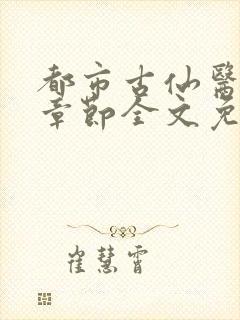 都市古仙醫
章節全文免
崔慧霄